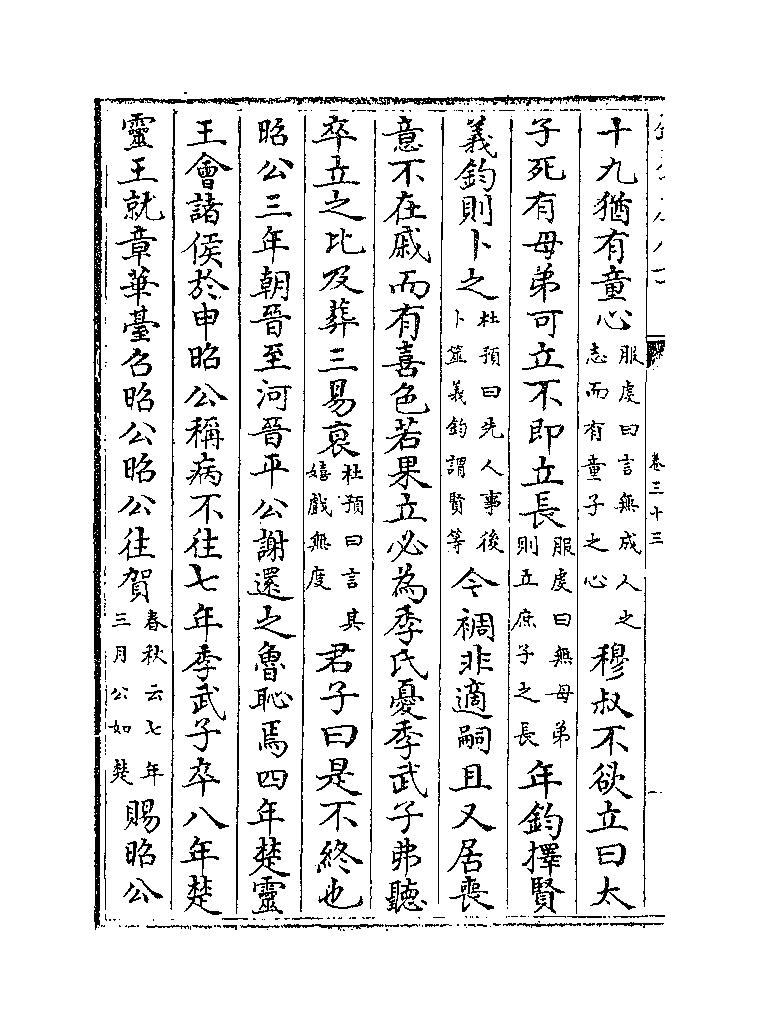 卷三十三
十九猶有童心服虔曰言無成人之志而有童子之心穆叔不欲立曰太
子死有母弟可立不即立長服虔曰無母弟則立庶子之長年鈞擇賢
義鈞則卜之杜預曰先人事後卜筮義鈞謂賢等今裯非適嗣且又居喪
意不在戚而有喜色若果立必為季氏憂季武子弗聽
卒立之比及葬三易衰杜預曰言其嬉戲無度君子曰是不終也
昭公三年朝晉至河晉平公謝還之魯恥焉四年楚靈
王會諸侯於申昭公稱病不往七年季武子卒八年楚
靈王就章華臺召昭公昭公往賀春秋云七年三月公如楚賜昭公